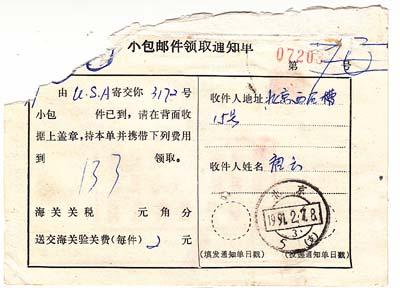 小包邮件领取通知单
07203
第 号
由U.S.A寄交你3172号
小包 件已到,请在背面收
据上盖章,持本单并携带下列费用
到 133 领取。
海关关税 元角分
送交海关验关费(每件)2元
收件人地址 北京西
15号
收件人姓名
北京
1991.2.28
3
5(支)
(填发通知单日戳)
(投递通知单日戳)